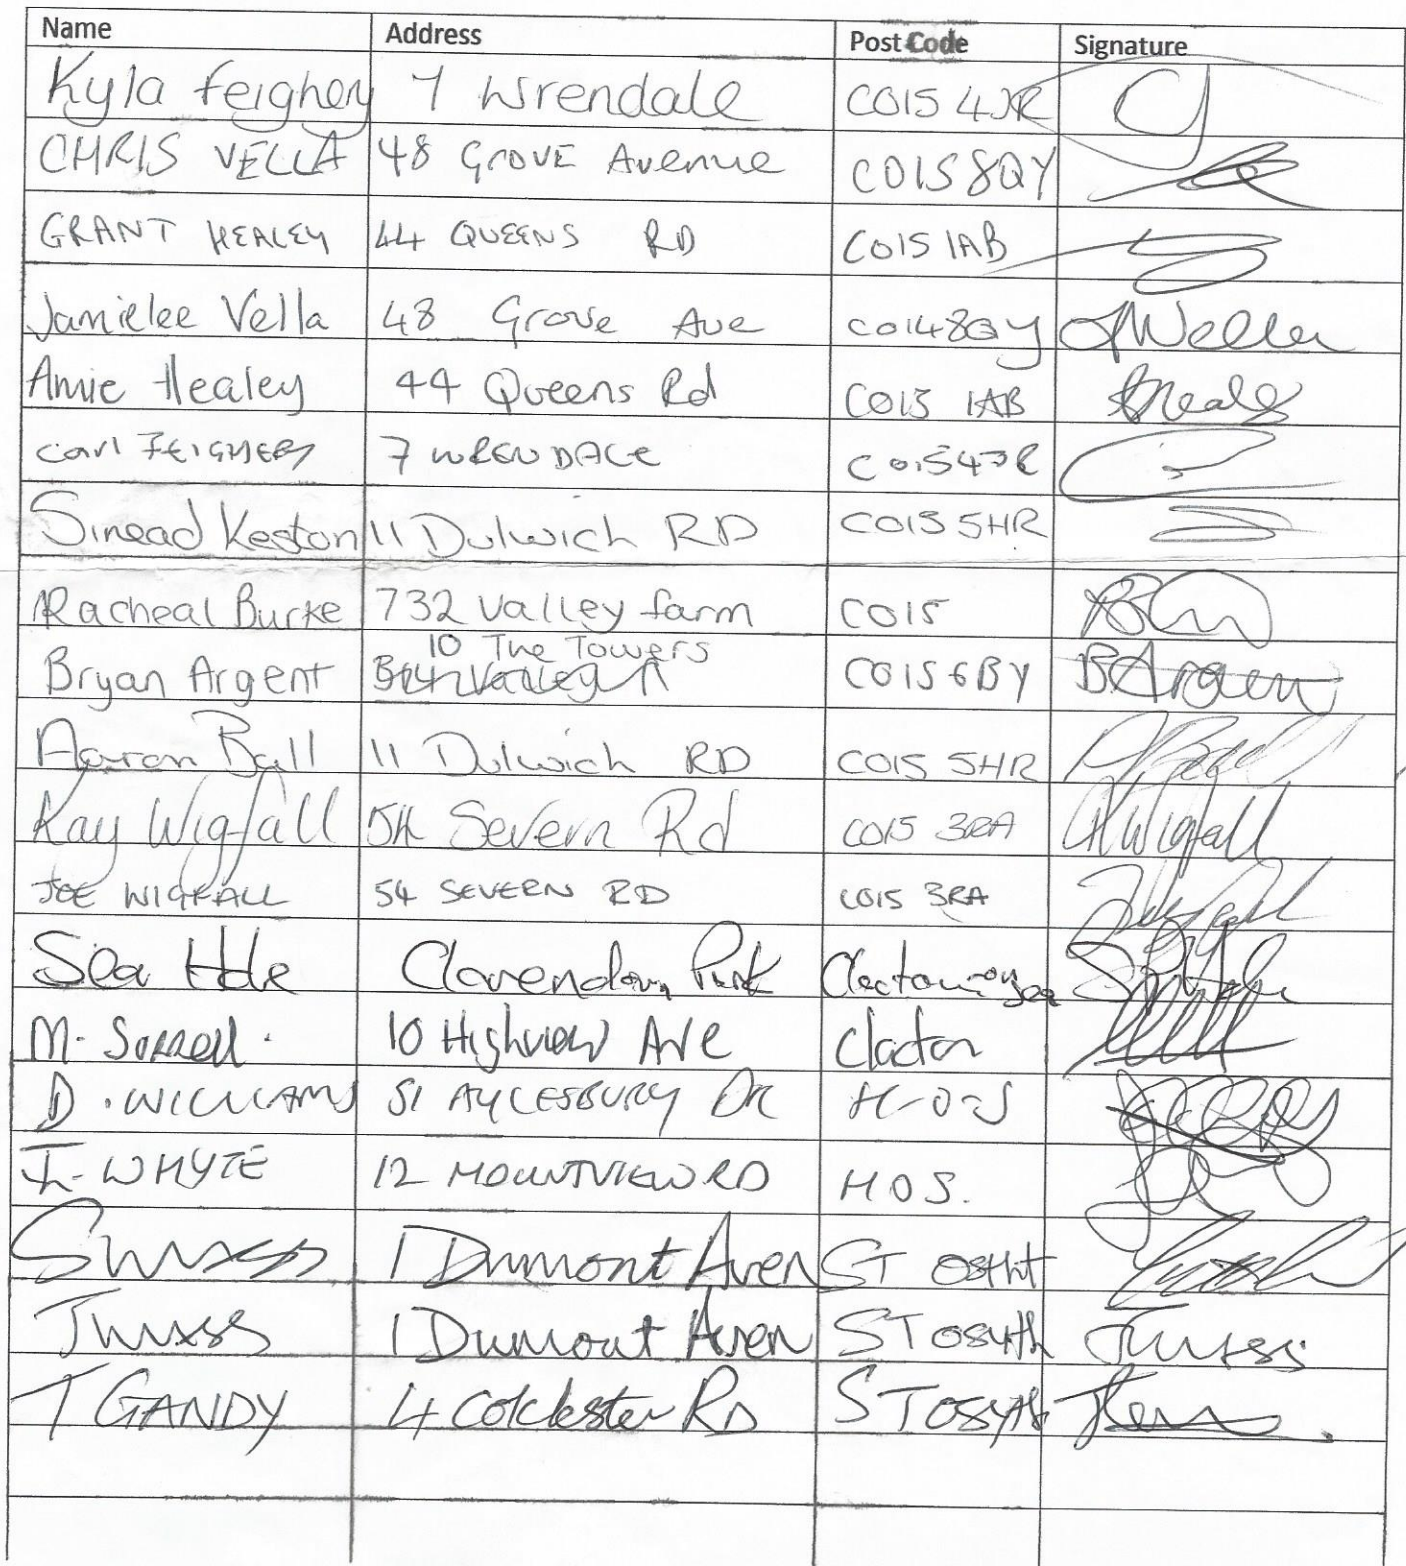 Name Address Post Code Signature
Kyla Feighery 7 Wrendale CO15 4JR
CHRIS VELLA 48 GROVE Avenue CO15 8QY
GRANT HEALEY 44 QUEENS RD CO15 1AB
Jamielee Vella 48 Grove Ave CO14 8QY
Amie Healey 44 Queens Rd CO15 1AB
Carl FEIGHERY 7 WRENDALE CO15 4JR
Sinead Keston 11 Dulwich RD CO15 5HR
Racheal Burke 732 Valley farm CO15
10 The Towers
Bryan Argent CO15 6BY BArgent
Aaron Ball 11 Dulwich RD CO15 5HR
Kay Wigfall 54 Severn Rd CO15 3RA KWigfall
JOE WIGFALL 54 SEVERN RD CO15 3RA
Clarendon Park Clacton on Sea
M. Sorrell. 10 Highview Ave Clacton
D. WILLIAMS 51 AYLESBURY DR H-O-S
I. WHYTE 12 MOUNTVIEW RD H O S.
1 Dumont Aven ST
1 Dumont Aven ST Osyth
T GANDY 4 Colchester RD ST Osyth